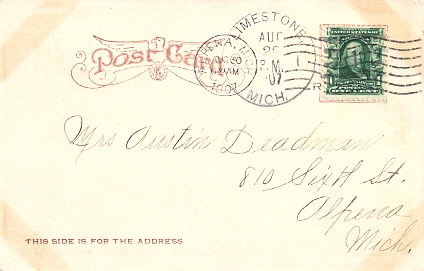 Post Card
LIMESTONE,
AUG
28
P.M.
'07
MICH.
ALPENA, MICH.
AUG 30
AM
1907
UNITED STATES
ONE CENT
Mrs Austin Deadman
810 Sixth St.
Alpena
Mich.
THIS SIDE IS FOR THE ADDRESS